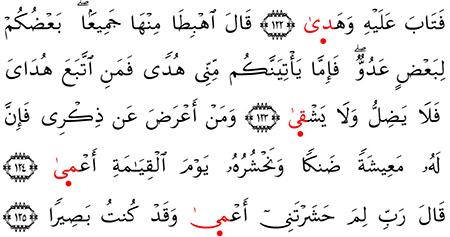 فَتَابَ عَلَيْهِ وَهَدىٰ ﴿١٢٢﴾ قَالَ ٱهْبِطَا مِنْهَا جَمِيعَۢاۖ بَعْضُكُمْ
لِبَعْضٍ عَدُوࣱّۖ فَإِمَّا يَأْتِيَنَّكُم مِّنِّى هُدࣰى فَمَنِ ٱتَّبَعَ هُدَاىَ
فَلَا يَضِلُّ وَلَا يَشْقىٰ ﴿١٢٣﴾ وَمَنْ أَعْرَضَ عَن ذِكْرِى فَإِنَّ
لَهُۥ مَعِيشَةࣰ ضَنكࣰا وَنَحْشُرُهُۥ يَوْمَ ٱلْقِيَـٰمَةِ أَعْمىٰ ﴿١٢٤﴾
قَالَ رَبِّ لِمَ حَشَرْتَنِىٓ أَعْمىٰ وَقَدْ كُنتُ بَصِيرࣰا ﴿١٢٥﴾